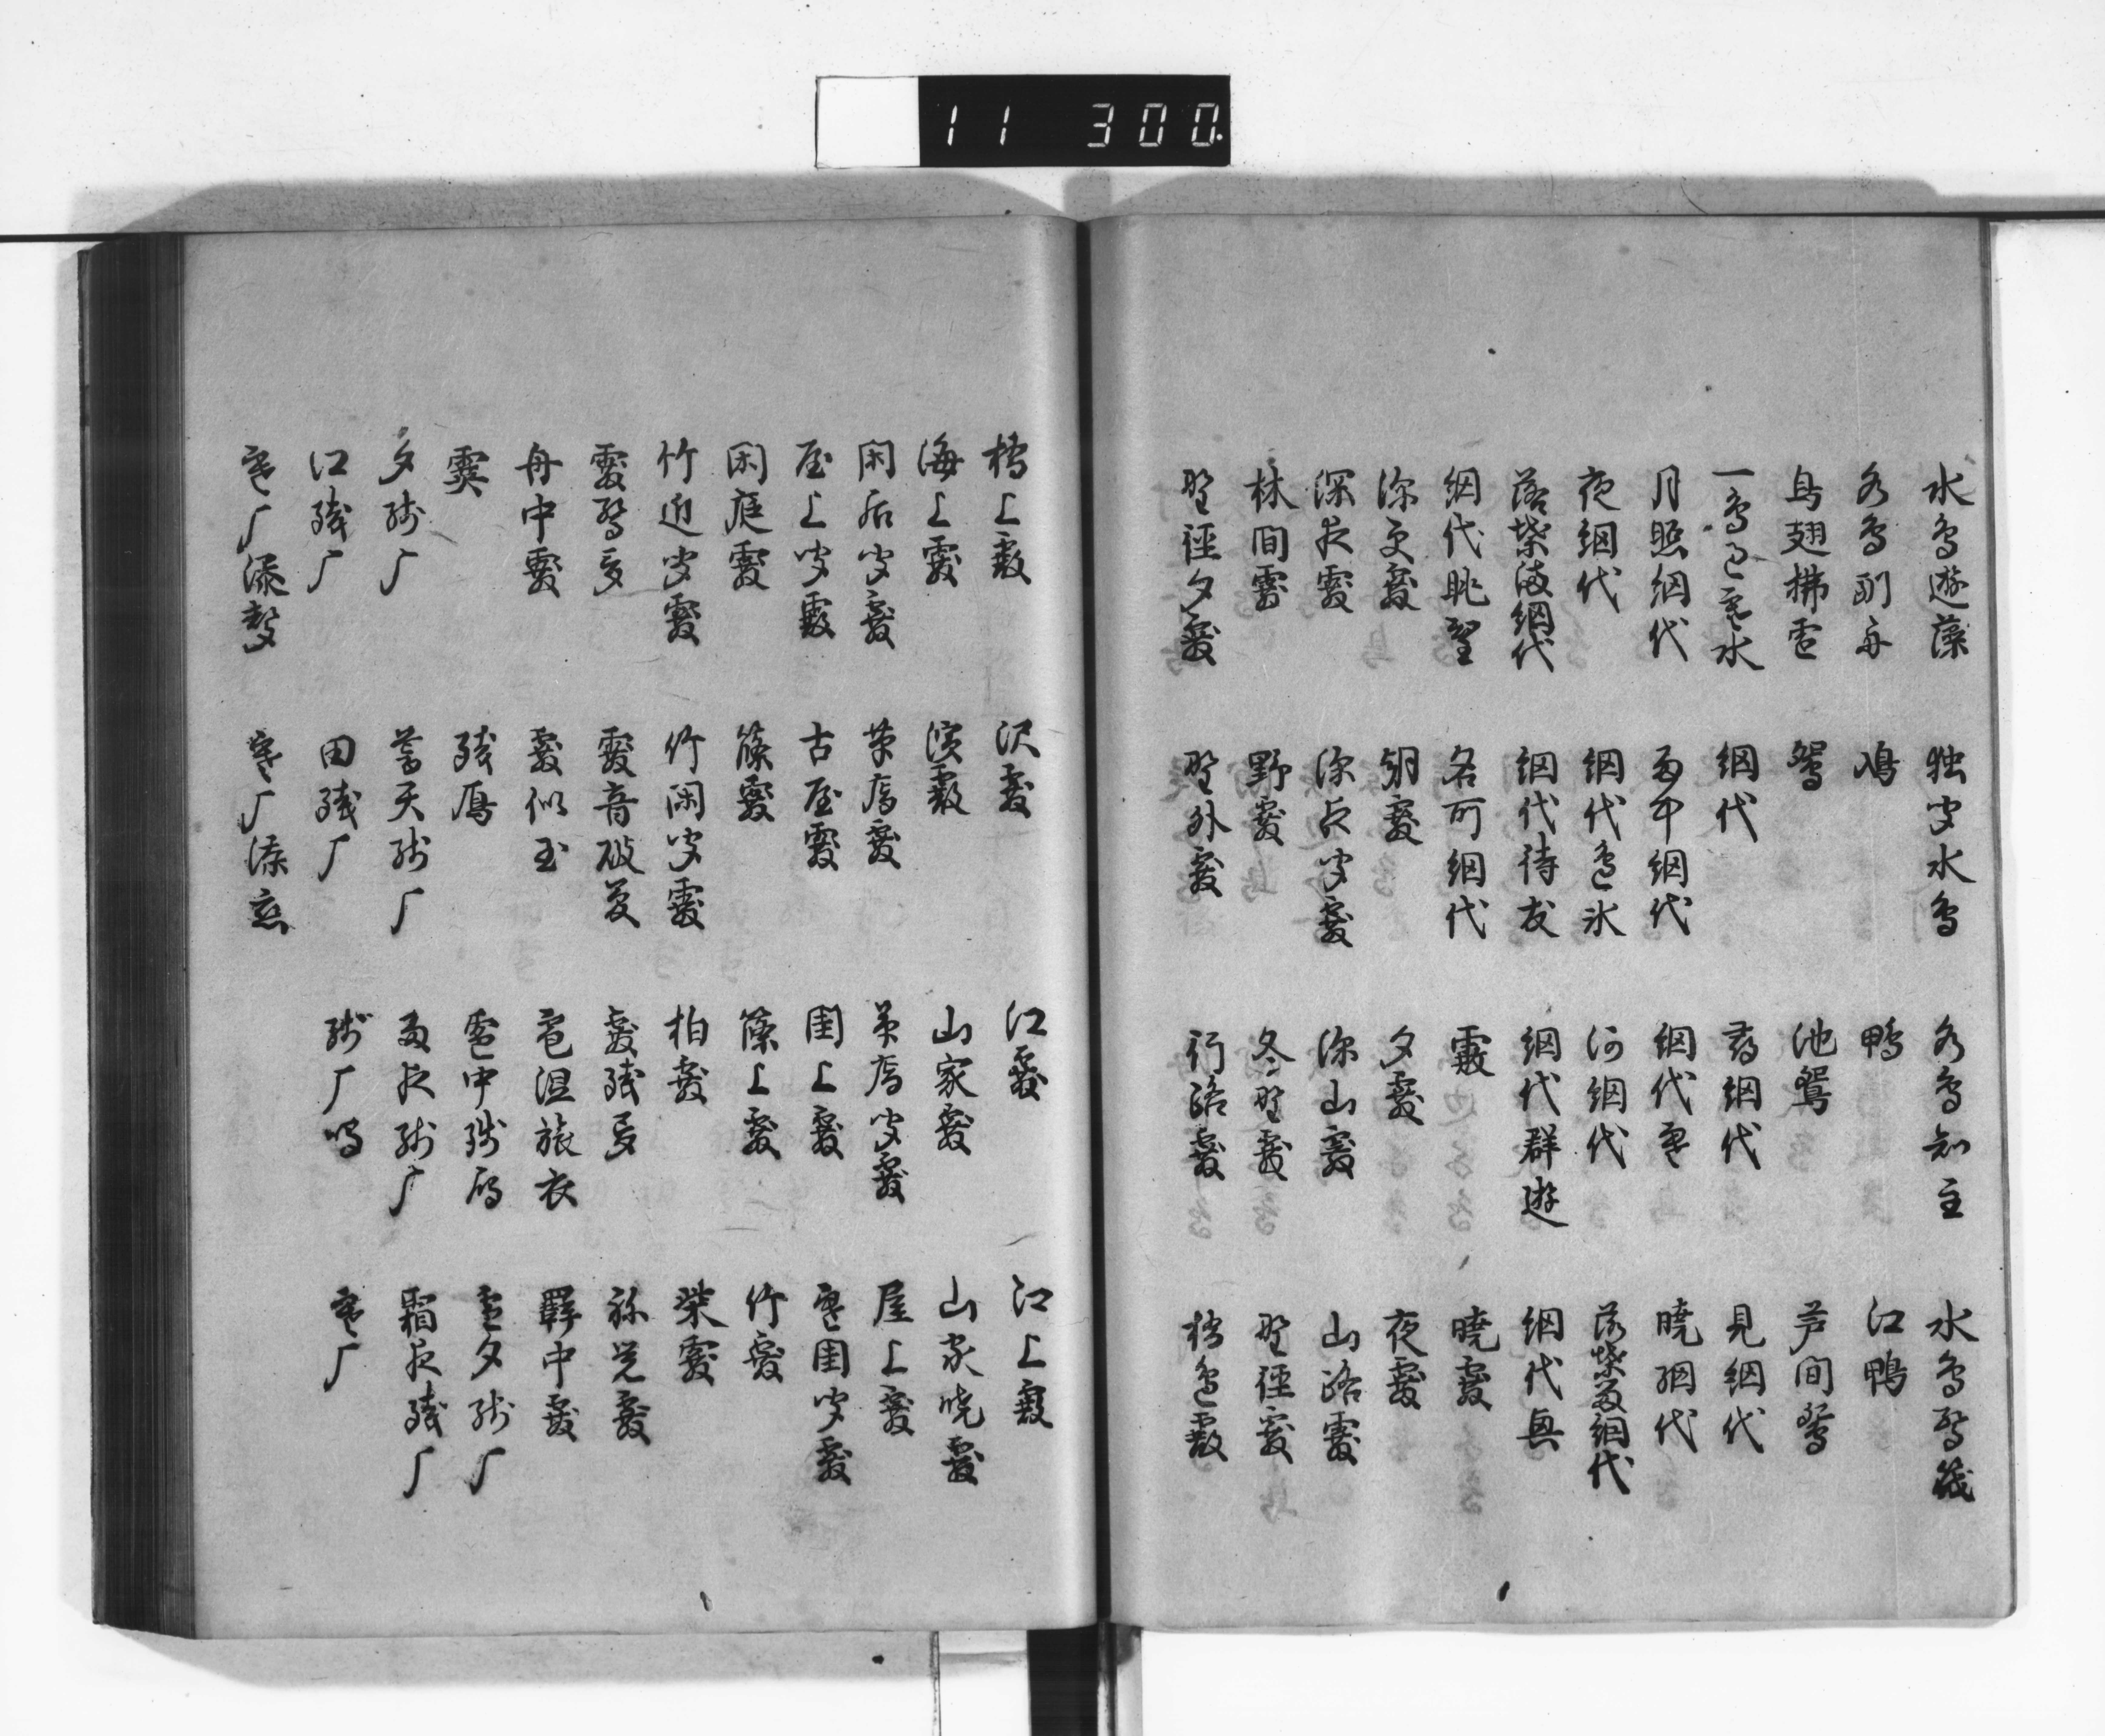 11 300
水鳥遊藻 独聞水鳥 水鳥知主 水鳥驚筏
水鳥馴舟 鳰 鴨 江鴨
鳥翅拂雪 鴛 池鴛 芦間鴛
一鳥過寒水 網代 尋網代 見網代
月照網代 雨中網代 網代寒 暁網代
夜網代 網代色氷 河網代 落葉留網代
落葉満網代 網代待友 網代群遊 網代興
網代眺望 名所網代 霰 暁霰
深更霰 朝霰 夕霰 夜霰
深夜霰 深夜聞霰 深山霰 山路霰
林間霰 野霰 冬野霰 野径霰
野径夕霰 野外霰 行路霰 橋邊霰
橋上霰 沢霰 江霰 江上霰
海上霰 濱霰 山家霰 山家暁霰
閑居聞霰 茅屋霰 茅屋聞霰 屋上霰
屋上聞霰 古屋霰 閨上霰 寒閨聞霰
閑庭霰 篠霰 篠上霰 竹霰
竹近聞霰 竹閑聞霰 柏霰 柴霰
霰驚夢 霰音破夢 霰残夢 祢覚霰
舟中霰 霰似玉 霰湿旅衣 羇中霰
霙 残鳫 雪中残鳫 雪夕残厂
夕残厂 暮天残厂 雨夜残厂 霜夜残厂
江残厂 田残厂 残厂鳴 寒厂
寒厂添聲 寒厂添愁